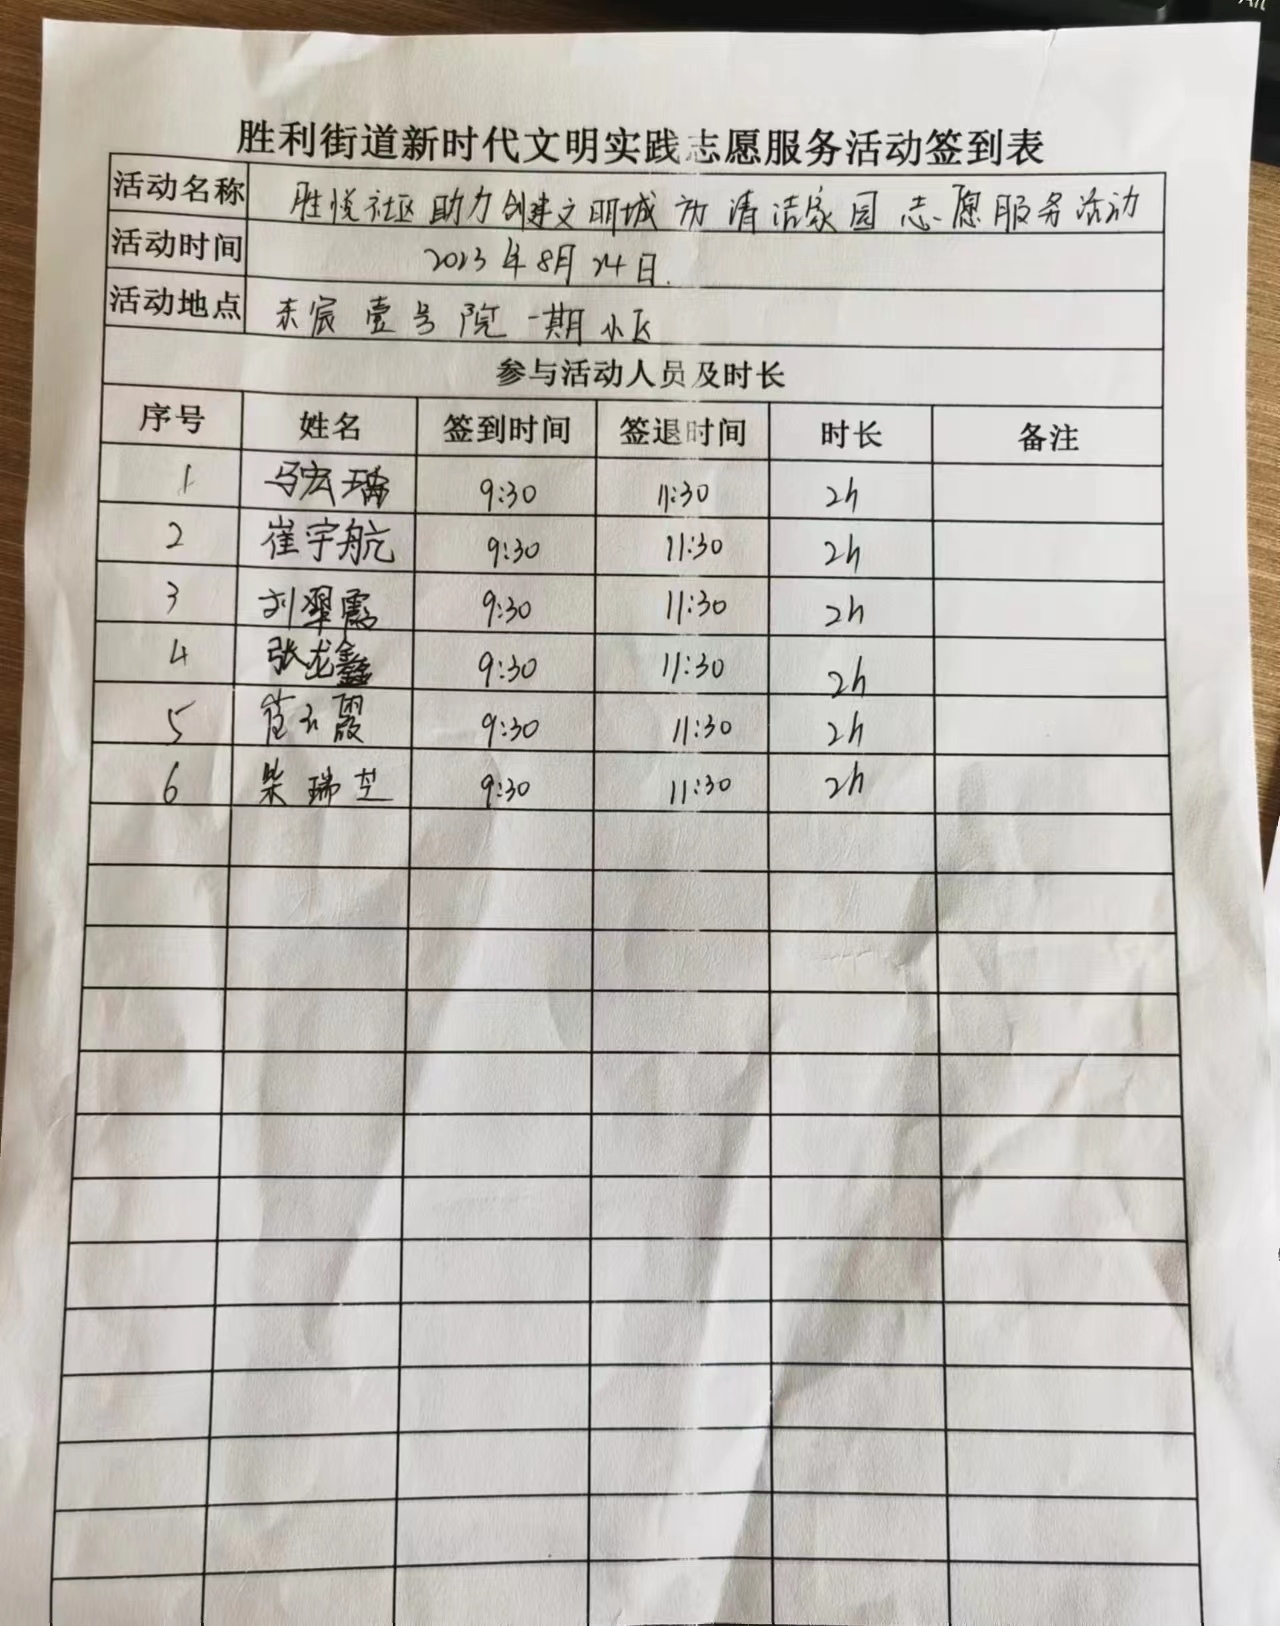 胜利街道新时代文明实践志愿服务活动签到表
活动名称 胜悦社区助力创建文明城市清洁家园志愿服务活动
活动时间 2023年8月24日.
活动地点 东宸壹号院一期小区
参与活动人员及时长
序号 姓名 签到时间 签退时间 时长 备注
1 马宏瑀 9:30 11:30 2h
2 崔宇航 9:30 11:30 2h
3 刘翠霞 9:30 11:30 2h
4 张龙鑫 9:30 11:30 2h
5 崔 霞 9:30 11:30 2h
6 柴瑞芝 9:30 11:30 2h